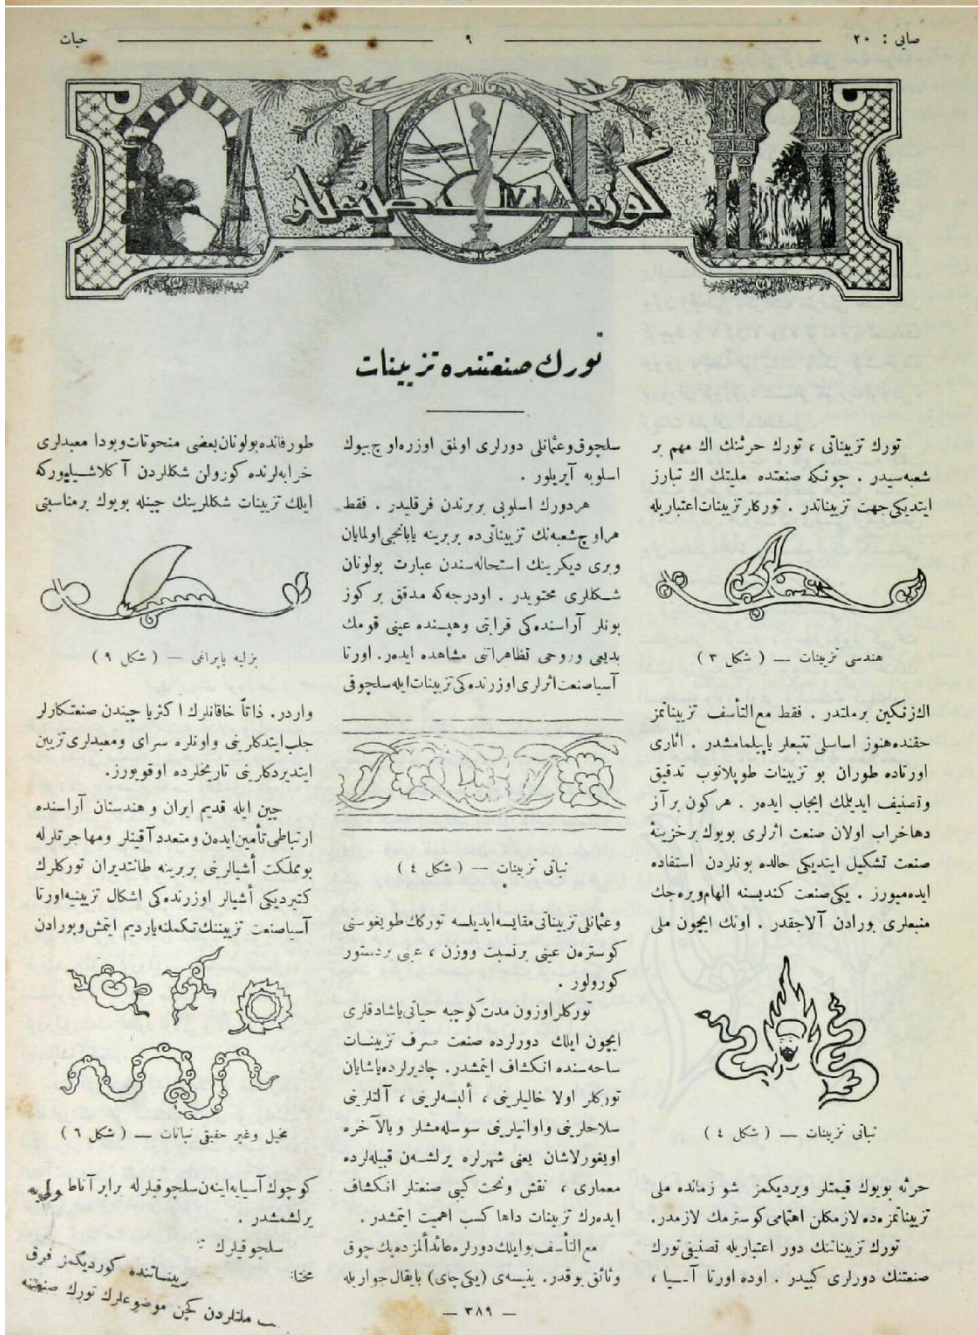 صایی : ۲۰
۹
حیات
كوزل صنعتلر
تورك صنعتنده تزيينات
تورك تزييناتی ، تورك حرثنك اك مهم بر
شعبه سيدر . چونكه صنعتده مليتك اك تبارز
ايتديكی جهت تزييناتدر . توركلر تزيينات اعتباريله
هندسی تزيينات — ( شكل ۳ )
اك زنكين بر ملتدر . فقط مع التأسف تزييناتمز
حقنده هنوز اساسلی تتبعلر ياپيلمامشدر . اثاری
اورتاده طوران بو تزيينات طوپلانوب تدقيق
وتصنيف ايديلمك ايجاب ايدەر . هركون بر آز
دها خراب اولان صنعت اثرلری بويوك بر خزينهٔ
صنعت تشكيل ايتديكی حالده بونلردن استفاده
ايده ميورز . يكی صنعت كنديسنه الهام ويره جك
منبعلری بورادن آلاجقدر . اونك ايچون ملی
نباتی تزيينات — ( شكل ٤ )
حرثه بويوك قيمتلر ويرديكمز شو زمانده ملی
تزييناتمزه ده لازمكلن اهتمامی كوسترمك لازمدر.
تورك تزييناتنك دور اعتباريله تصنيفی تورك
صنعتنك دورلری كبيدر . اوده اورتا آسيا ،
سلچوق وعثمانلی دورلری اولمق اوزره اوچ بيوك
اسلوبه آيريلور .
هر دورك اسلوبی بربرندن فرقليدر . فقط
هر اوچ شعبه نك تزييناتی ده بربرينه يابانجی اولمايان
وبری ديكرينك استحاله سندن عبارت بولونان
شكللری محتويدر . اودرجه كه مدقق بر كوز
بونلر آراسنده كی قرابتی وهپسنده عينی قومك
بديعی وروحی تظاهراتنی مشاهده ايدەر. اورتا
آسيا صنعت اثرلری اوزرنده كی تزيينات ايله سلچوقی
نباتی تزيينات — ( شكل ٤ )
وعثمانلی تزييناتی مقايسه ايديلسه توركك طويغوسنی
كوستره ن عينی بر نسبت ووزن ، عينی بر دستور
كورولور .
توركلر اوزون مدت كوچبه حياتی ياشادقلری
ايچون ايلك دورلرده صنعت صرف تزيينات
ساحه سنده انكشاف ايتمشدر. چاديرلرده ياشايان
توركلر اولا خاليلرينی ، ألبسه لرينی ، آلتلرينی
سلاحلرينی واوانيلرينی سوسله مشلر وبالآخره
اويغورلاشان يعنی شهرلره يرلشه ن قبيله لرده
معماری ، نقش ونحت كبی صنعتلر انكشاف
ايده رك تزيينات داها كسب اهميت ايتمشدر.
مع التأسف بو ايلك دورلره عائد ألمزده پك چوق
وثائق يوقدر. ينيسه ی (يكی چای) بايقال جواريله
طورفانده بولونان بعضی منحوتات وبودا معبدلری
خرابه لرنده كورولن شكللردن آكلاشيليوركه
ايلك تزيينات شكللرينك چينله بويوك بر مناسبتی
بزليه ياپراغی — ( شكل ۹ )
واردر. ذاتاً خاقانلرك اكثريا چيندن صنعتكارلر
جلب ايتدكلرينی واونلره سرای ومعبدلری تزيين
ايتديردكلرينی تاريخلرده اوقويورز.
چين ايله قديم ايران و هندستان آراسنده
ارتباطی تأمين ايده ن ومتعدد آقينلر ومهاجرتلرله
بو مملكت أشيالرينی بربرينه طانتديران توركلرك
كتيرديكی أشيالر اوزرنده كی اشكال تزيينيه اورتا
آسيا صنعت تزييننك تكملنه ياردیم ايتمش وبورادن
مخيل وغير حقيقی نباتات — ( شكل ٦ )
كوچوك آسيايه اينه ن سلچوقيلرله برابر آناطولی يه
يرلشمشدر .
سلچوقيلرك
كورديكمز فرق
ملتلردن كچن موضوعلرك تورك صنعتنه
— ۳۸۹ —